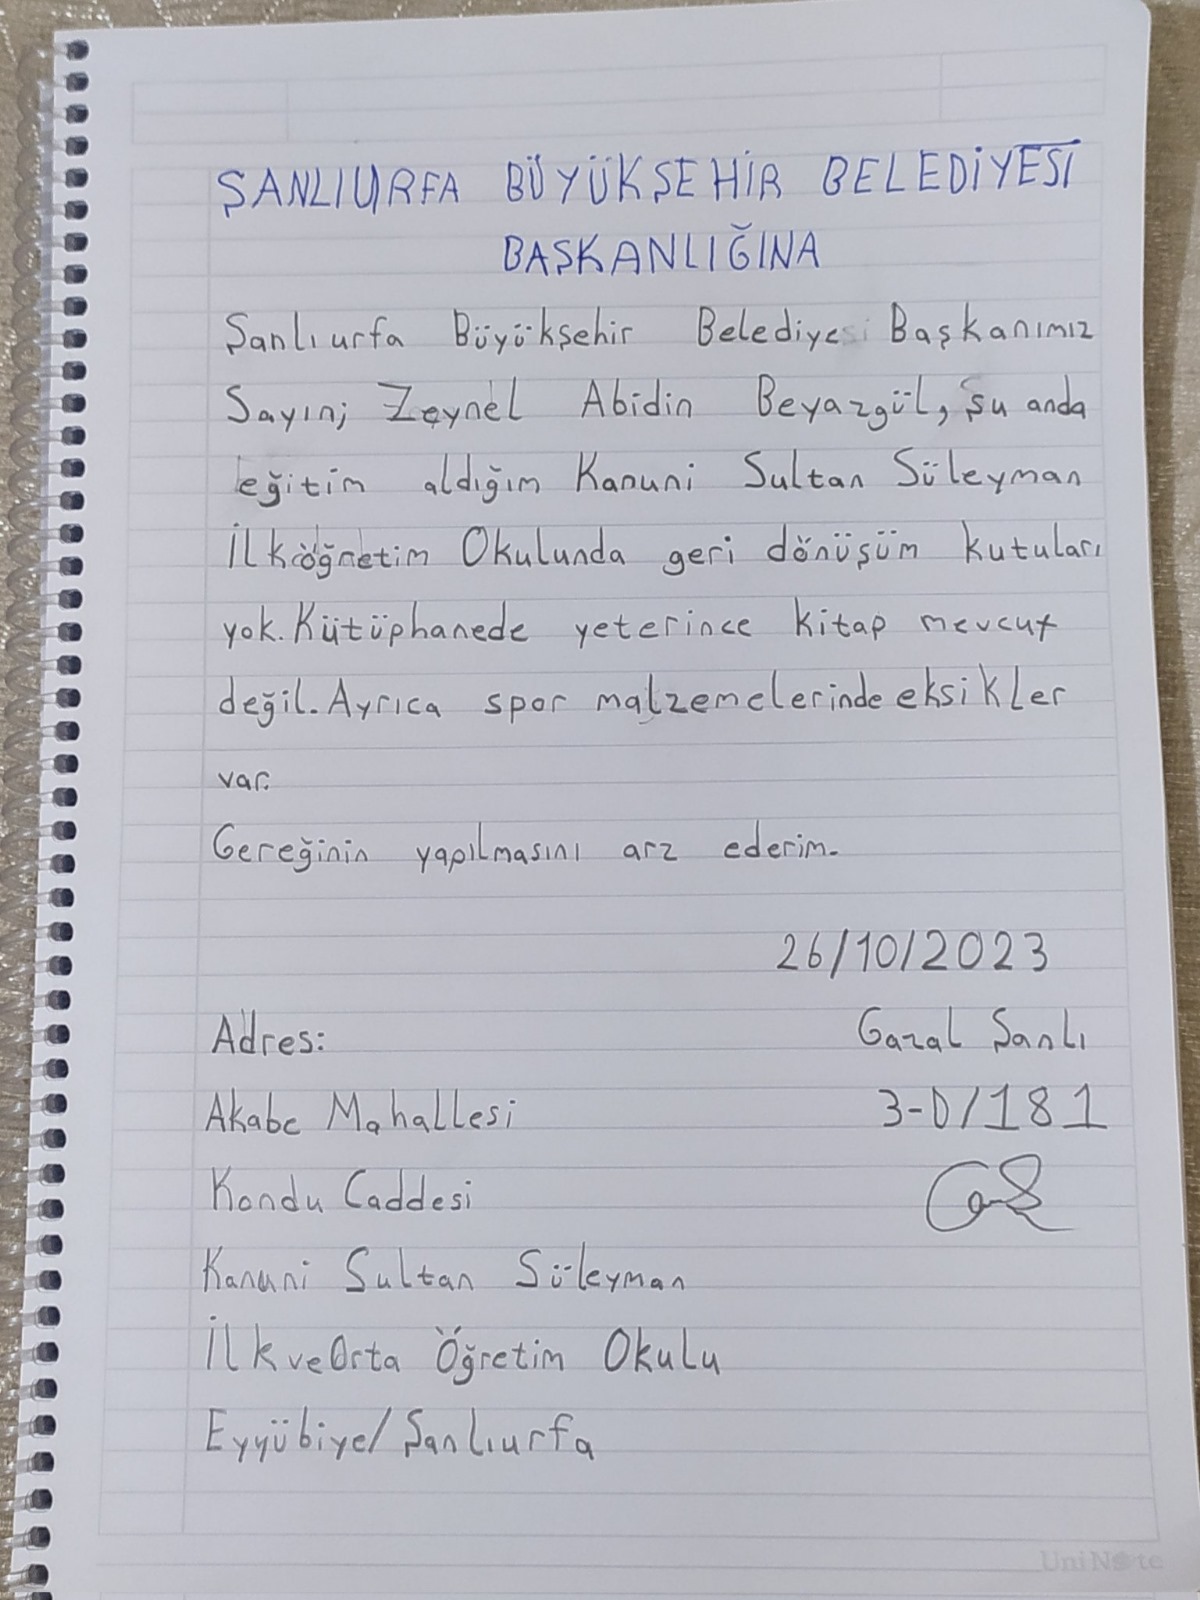 ŞANLIURFA BÜYÜKŞEHİR BELEDİYESİ
BAŞKANLIĞINA
Şanlıurfa Büyükşehir Belediyesi Başkanımız
Sayın; Zeynel Abidin Beyazgül, şu anda
eğitim aldığım Kanuni Sultan Süleyman
İlköğretim Okulunda geri dönüşüm kutuları
yok. Kütüphanede yeterince kitap mevcut
değil. Ayrıca spor malzemelerinde eksikler
var.
Gereğinin yapılmasını arz ederim.
26/10/2023
Adres: Gazal Şanlı
Akabe Mahallesi 3-D/181
Kondu Caddesi
Kanuni Sultan Süleyman
İlk ve Orta Öğretim Okulu
Eyyübiye/Şanlıurfa
UniNote